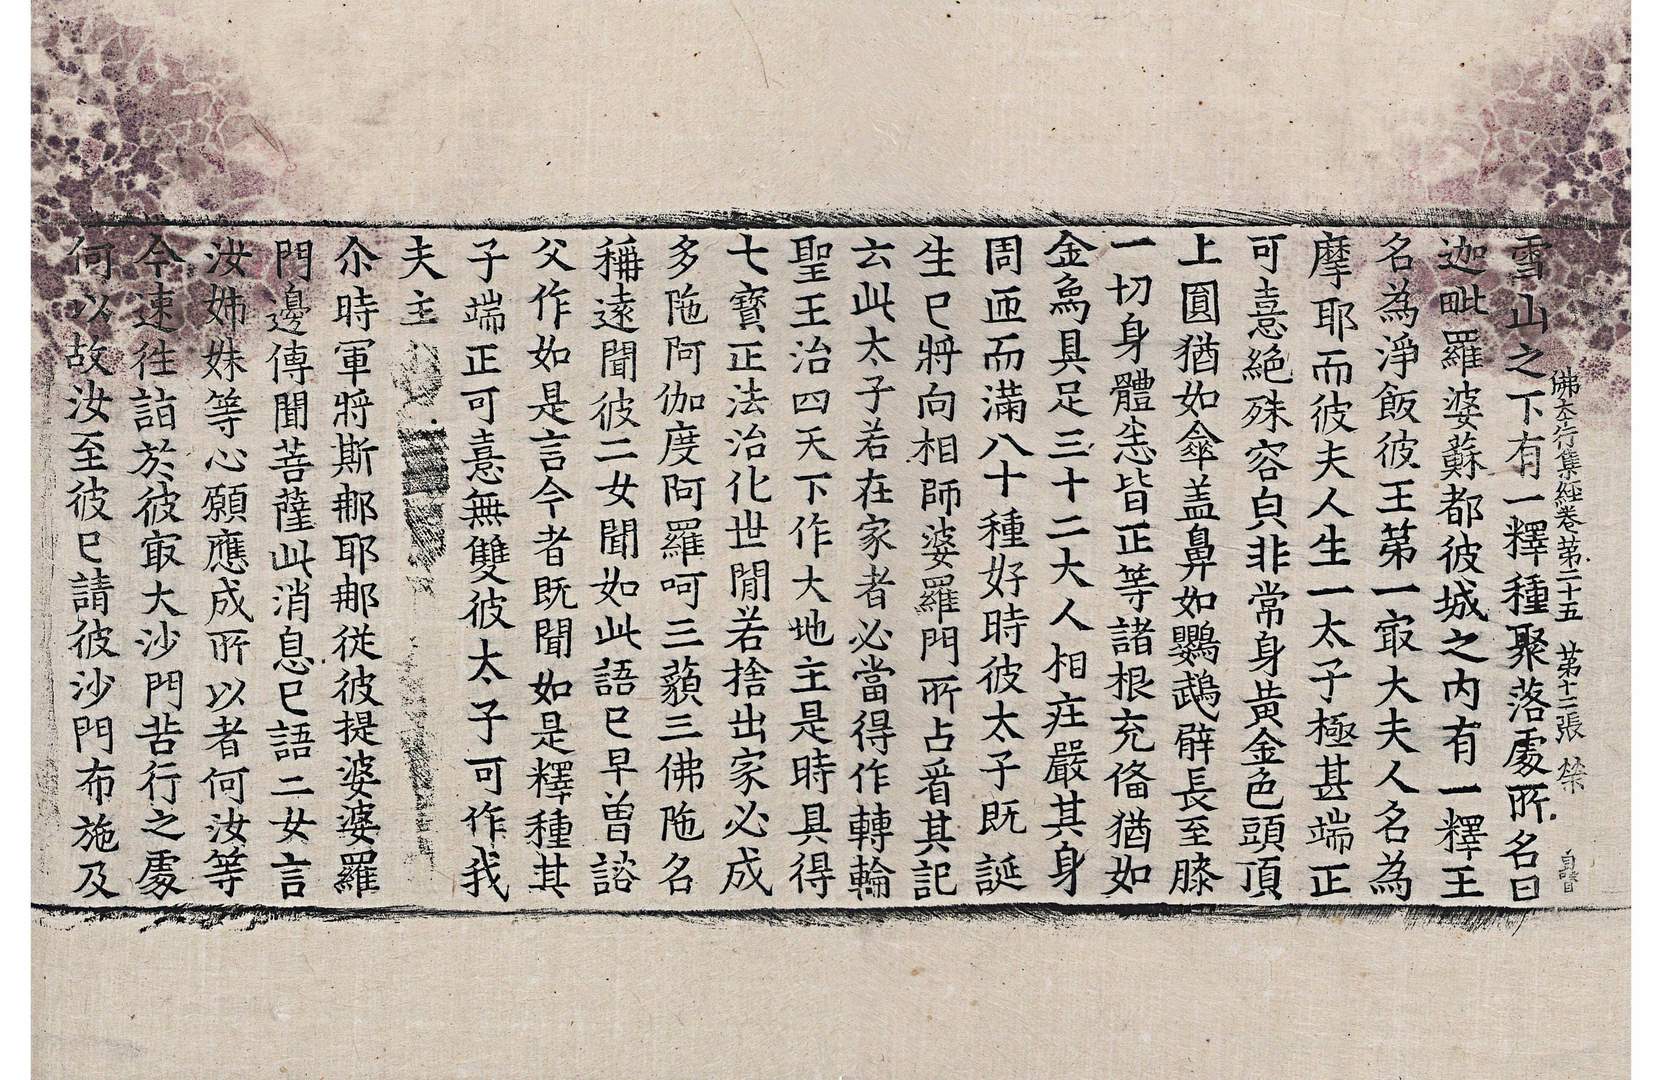 佛本行集經卷苐二十五　苐十二張　榮
雪山之下有一釋種聚落處所名曰
迦毗羅婆蘇都彼城之内有一釋王
名為淨飯彼王苐一㝡大夫人名為
摩耶而彼夫人生一太子極甚端正
可憙絶殊容皃非常身黃金色頭頂
上圓猶如傘盖鼻如鸚鵡臂長至膝
一切身體悉皆正等諸根充俻猶如
金鳥具足三十二大人相疘嚴其身
周匝而滿八十種好時彼太子既誕
生已將向相師婆羅門所占㸔其記
云此太子若在家者必當得作轉輪
聖王治四天下作大地主是時具得
七寶正法治化世間若捨出家必成
多陁阿伽度阿羅呵三藐三佛陁名
稱遠聞彼二女聞如此語已早曽諮
父作如是言今者既聞如是釋種其
子端正可憙無雙彼太子可作我
夫主
尒時軍將斯那耶那從彼提婆婆羅
門邊傳聞菩薩此消息已語二女言
汝姊妹等心願應成所以者何汝等
今速往詣於彼㝡大沙門苦行之處
何以故汝至彼已請彼沙門布施及